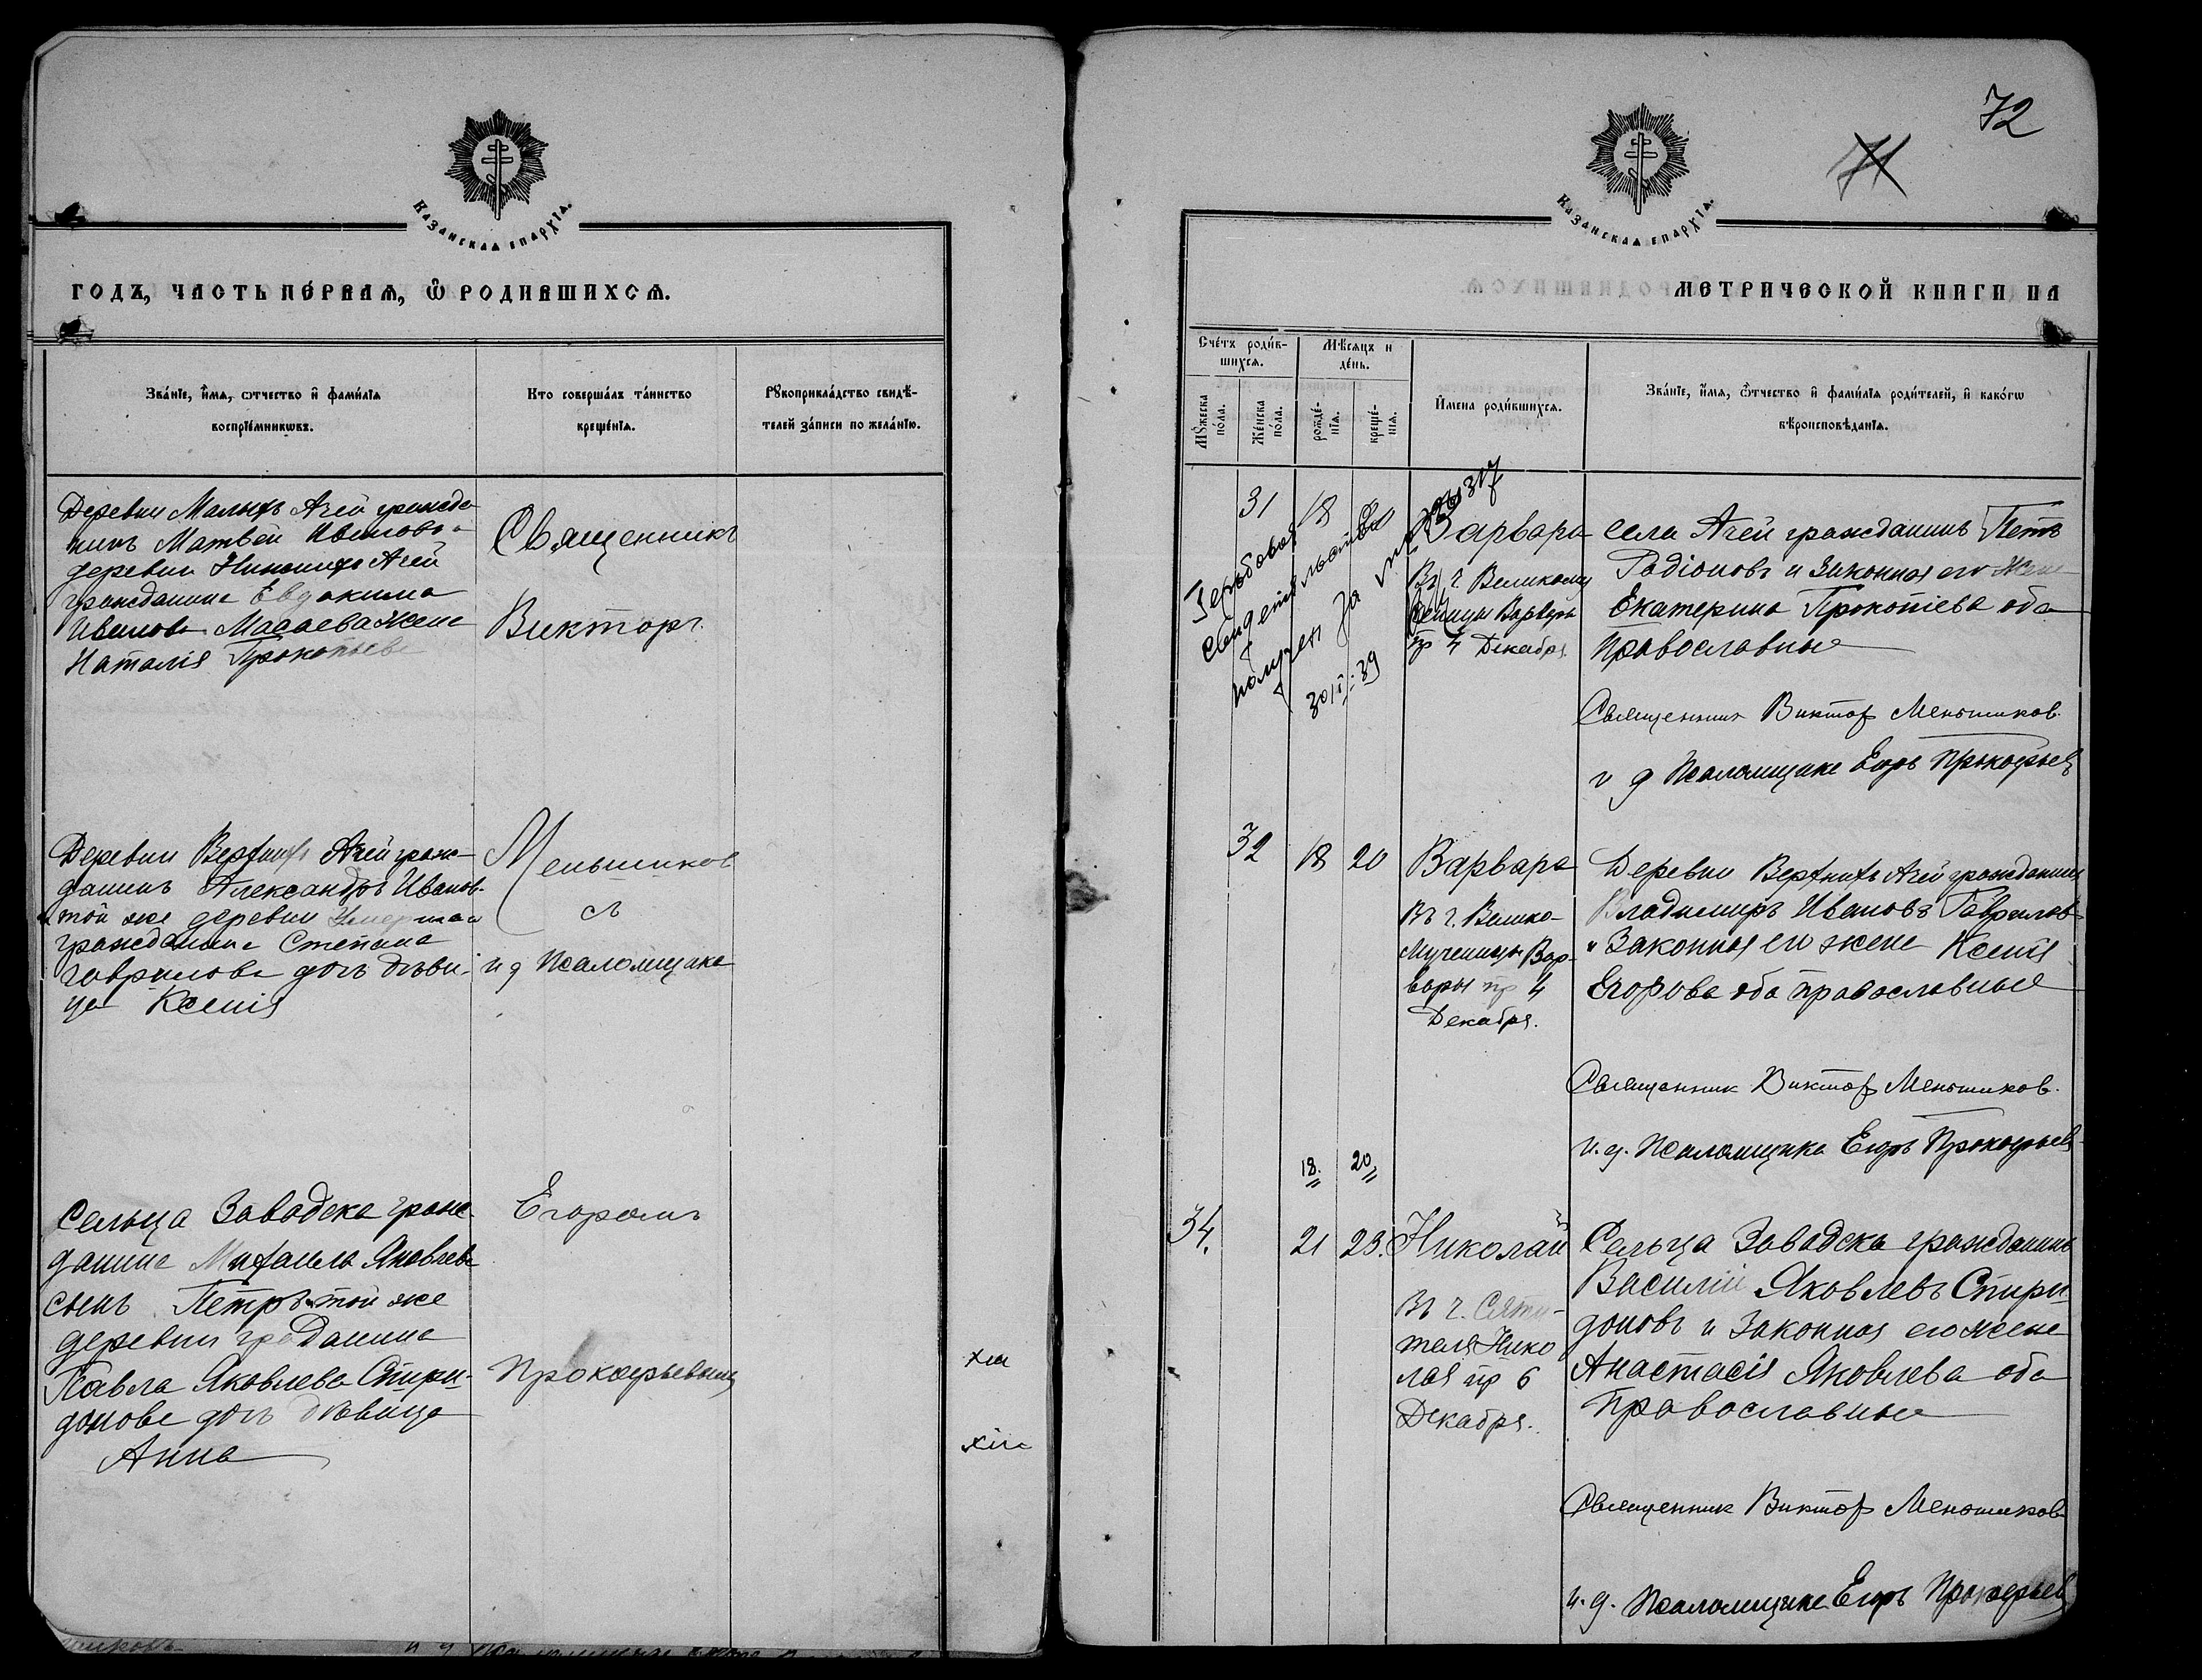 КАЗАНСКАЯ ЕПАРХІЯ.
ГОДЪ, ЧАСТЬ ПЕ́РВАЯ, Ѿ РОДИВШИХСЯ.
Зва́нїе, и҆́мя, ѻтчество и҆ фами́лїя
воспрїе́мникωвъ.
Кто соверша́лъ та́инство
креще́нїя.
Рꙋкоприкла́дство свидѣ́-
телей за́писи по жела́нїю.
Деревни Малыхъ Ачей гражда-
нинъ Матвей Ивановъ
деревни Нижнихъ Ачей
гражданина Евдокима
Иванова Масаева жена
Наталія Прокопьева
Священникъ
Викторъ
Деревни Верхнихъ Ачей граж-
данинъ Александръ Иванов-
той же деревни
гражданина Степана
Гаврилова дочь дѣви-
ца Ксенія
Меньшиков
съ
и д Псаломщика
Сельца Заводска граж-
данина Михаила Яковлева
сынъ Петръ той же
деревни граданина
Павла Яковлева Спири-
донова дочь дѣвица
Анна
Егоромъ
Прокофьевымъ
72
71
КАЗАНСКАЯ ЕПАРХІЯ.
МЕТРИЧЕСКОЙ КНИГИ НА
Сче́тъ роди́в-
шихся.
Мѣ́сяцъ и
де́нь.
Мꙋжеска
по́ла.
Же́нска
по́ла.
рожде́-
нїя.
креще́-
нїя.
И҆мена роди́вшихся.
Зва́нїе, и҆́мя, ѻтчество и҆ фами́лїя роди́телей, и҆ како́гω
вѣроисповѣ́данїя.
31 18
Варвара
Въ ч. Великому
ченицы Варвары
пр 4 Декабря.
села Ачей гражданинъ Петръ
Родіоновъ и Законная его жена
Екатерина Прокопіева оба
православные
Гербовая
свидетельства
30/I-39
Священник Виктор Меньшиков.
и д Псаломщика Егоръ Прокофьевъ
32 18 20 Варвара
Въ ч. Велико-
мученицы Вар-
вары пр 4
Декабря.
Деревни Верхнихъ Ачей гражданинъ
Владимиръ Ивановъ Гаврилов
и Законная его жена Ксенія
Егорова оба православные
Священник Виктор Меньшиков.
и. д. Псаломщика Егоръ Прокофьев
18. 20
34. 21 23. Николай
Въ ч. Святи-
теля Нико
лая пр 6
Декабря.
Сельца Заводска гражданинъ
Василій Яковлевъ Спири-
доновъ и Законная его жена
Анастасія Яковлева оба
Православные
Священник Виктор Меньшиков
и. д. Псаломщика Егоръ Прокофьев